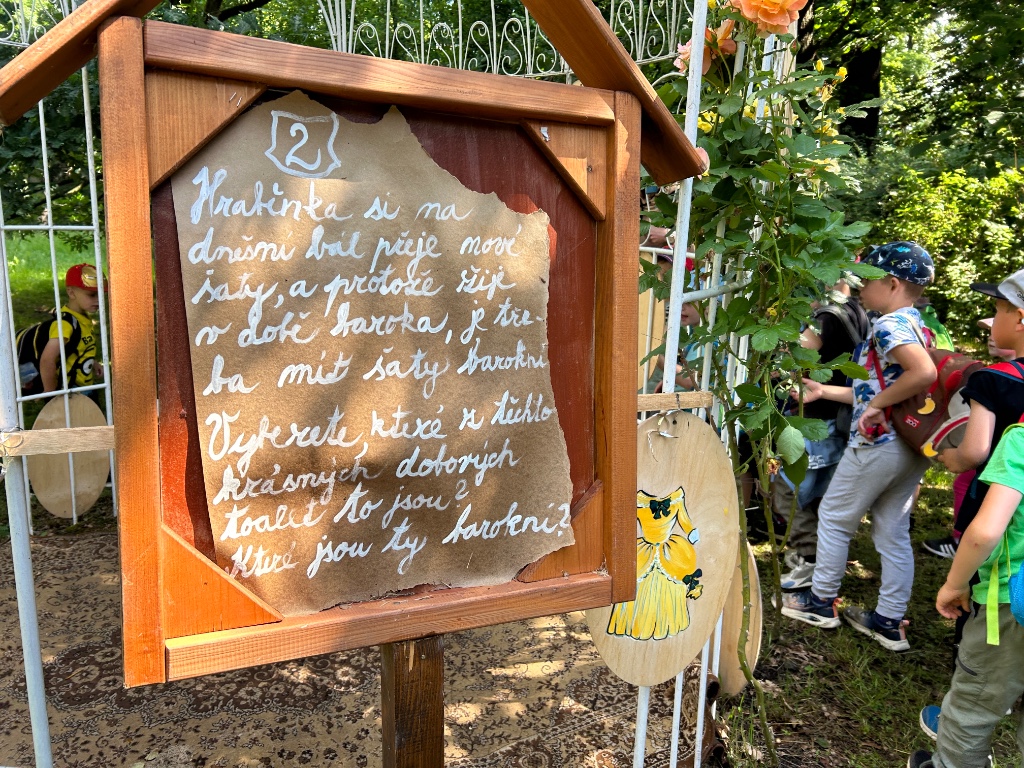 2
Hraběnka si na
dnešní bál přeje nové
šaty, a protože žije
v době baroka, je tře-
ba mít šaty barokní
Vyberete, které z těchto
krásných dobových
toalet to jsou?
Které jsou ty barokní?